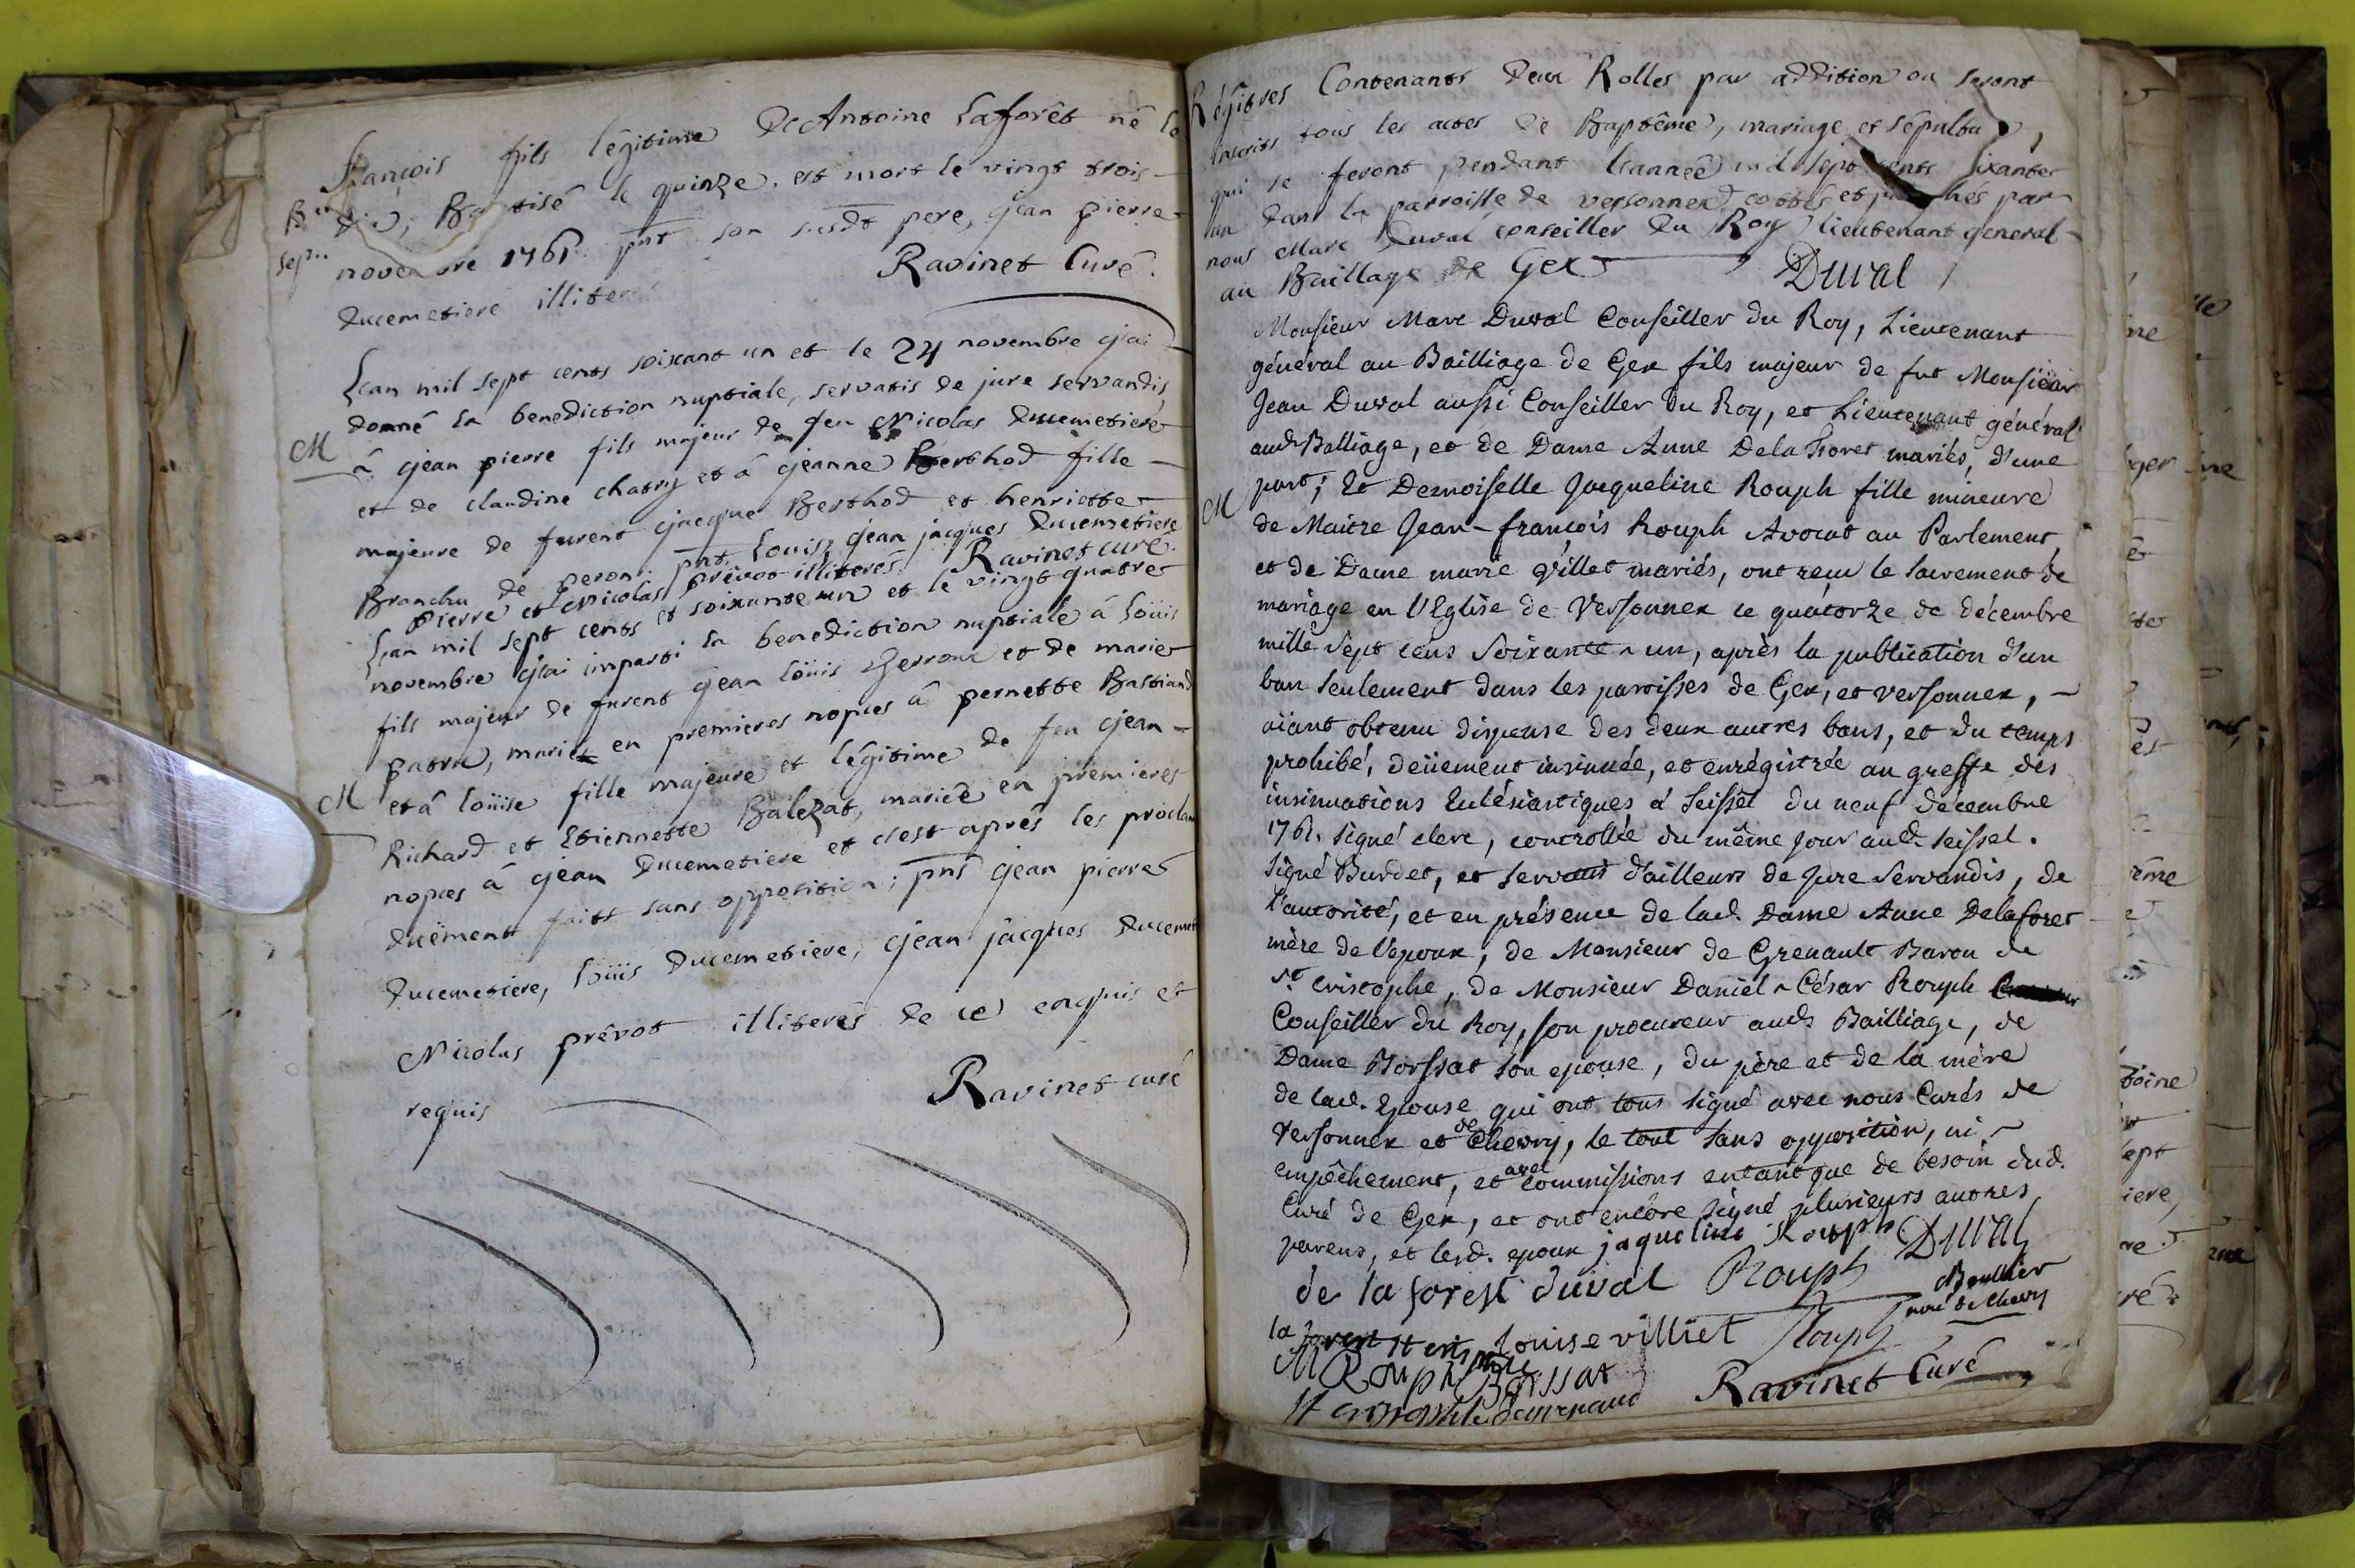 françois fils légitime De Antoine Laforêt né le
Bap.
dix, Baptisé le quinze, est mort le vingt trois
Sep.
novembre 1761 pnt son susdt pere, gjean pierre
Ducemetiere illiterés
Ravinet Curé.
L'an mil sept cents soixant un et le 24 novembre gj'ai
donné la benediction nuptiale, servatis de jure servandis,
M
à gjean pierre fils majeur de feu Nicolas Ducemetiere
et de claudine chatry et à gjeanne Berthod fille
majeure de furent gjacque Berthod et henriette
Branchu de peron. pnt Louis, gjean jacques Ducemetiere
pierre et Nicolas prévot illiterés. Ravinet curé.
L'an mil sept cents et soixante un et le vingt quatre
novembre gj'ai imparti la benediction nuptiale à Loüis
fils majeur de furent gjean Loüis et de marie
patru, mariét en premieres nopces à pernette Bastiand
M
et à Loüise fille majeure et légitime de feu gjean
Richard et Etiennette Balezat, mariée en premieres
nopces à gjean Ducemetiere et c'est aprés les proclam
duëment faits sans opposition; pns gjean pierre
Ducemetiere, Loüis Ducemetiere, gjean jacques Ducemet
Nicolas prévot illiterés de ce enquis et
requis
Ravinet curé
Régîtres Contenants Deux Rolles par addition ou seront
inscrits tous les actes de Baptême, mariage et sépultu
qui se feront pendant l'année mil sept cents soixante
un dans la parroisse de versonnex, cottés et par
nous Marc Duval conseiller du Roy lieutenant general
au Baillage de Gex
Duval
Monsieur Marc Duval Conseiller du Roy, Lieutenant
général au Bailliage de Gex fils majeur de fut Monsieur
Jean Duval aussi Conseiller du Roy, et Lieutenant général
aud. Balliage, et de Dame Anne Dela Foret mariés, d'une
M
part; Et Demoiselle Jacqueline Rouph fille mineure
de Maitre Jean-françois Rouph Avocat au Parlement,
et de Dame marie Villet mariés, ont reçu le sacrement de
mariage en l'Eglise de Versonnex le quatorze de décembre
mille sept cens soixante-un, après la publication d'un
ban seulement dans les paroisses de Gex, et versonnex,
aïant obtenu dispense des deux autres bans, et du temps
prohibé, deüement insinuée, et enrégistrée au greffe des
insinuations Eclésiastiques à seissel du neuf décembre
1761. signé clerc, controllée du même jour aud. seissel.
signé Burdet, et servatis d'ailleurs de jure servandis, de
l'autorité, et en présence de lad. Dame Anne Delaforet
mère de l'epoux, de Monsieur de Grenault Baron de
st. Cristophe, de Monsieur Daniel-César Rouph
Conseiller du Roy, son procureur aud. Bailliage, de
Dame Borssat son epouse, du père et de la mère
de lad. Epouse qui ont tous signé avec nous Curés de
Versonnex et de Chevry, le tout sans opposition, ni
empêchement, et avec commissions entant que de besoin dud.
Curé de Gex, et ont encôre signé plusieurs autres
parens, et lesd. epoux jaqueline Rouph Duval
de la forest duval Rouph
curé de Chevry
Louise villiet Rouph
M Rouph Borssat
Ravinet Curé